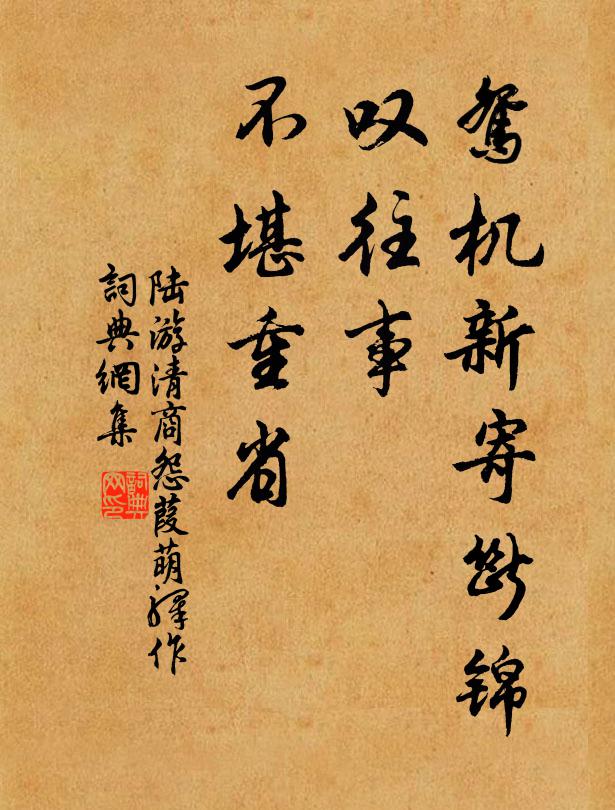 鸳机新寄断锦
叹往事
不堪重省
陆游清商怨葭萌驿作
詞典網集
詞典
网印